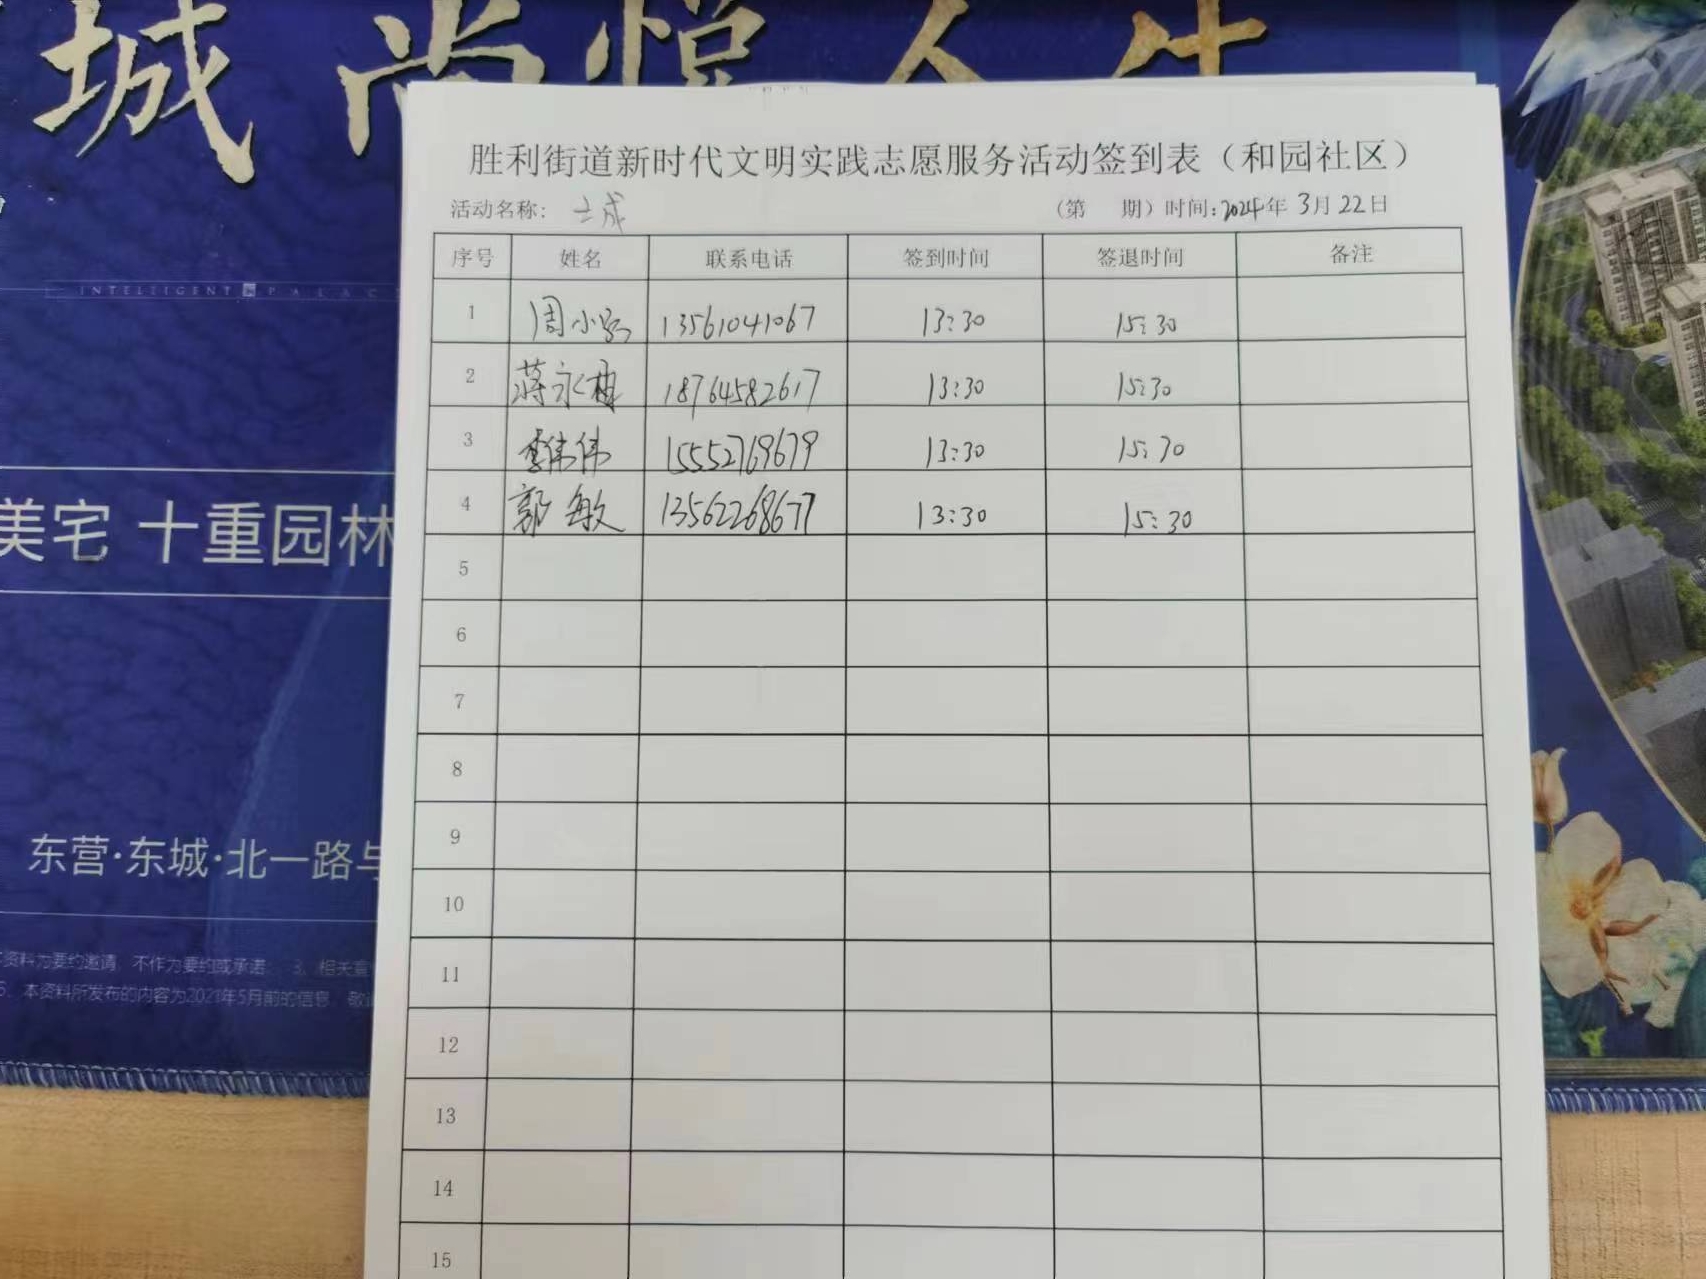 城尚悦人生
INTELLIGENT PALAC
美宅 十重园林
东营·东城·北一路与
资料为要约邀请，不作为要约或承诺； 3、相关宣
5、本资料所发布的内容为2021年5月前的信息，敬请
胜利街道新时代文明实践志愿服务活动签到表（和园社区）
活动名称： 士成 （第 期）时间：2024年 3月 22日
序号 姓名 联系电话 签到时间 签退时间 备注
1 周小 13561041067 13:30 15:30
2 蒋永 18764582617 13:30 15:30
3 李伟伟 15552769679 13:30 15:30
4 郭敏 13562268677 13:30 15:30
5
6
7
8
9
10
11
12
13
14
15